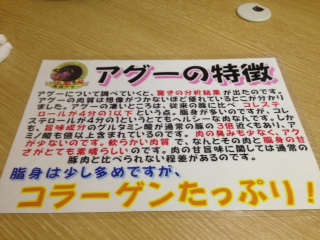 アグーの特徴
アグーについて調べていくと、驚きの分析結果が出たのです。
アグーの肉質は想像がつかないほど優れていることが分かり
ました。アグーの凄いところは、従来の豚に比べ コレステ
ロールが4分の1以下という点。脂身が多いのですが、コレ
ステロールが4分の1というとてもヘルシーな肉なんです。しか
も、旨味成分のグルタミン酸が通常の豚の3倍近くもあり、アミ
ノ酸も倍以上含まれているのです。肉の臭みも少なく、アク
が少ないのです。軟らかい肉質で、なんとその肉と脂身の甘
さがとても素晴らしいのです。肉の甘旨味に関しては通常の
豚肉と比べられない程差があるのです。
脂身は少し多めですが、
コラーゲンたっぷり!